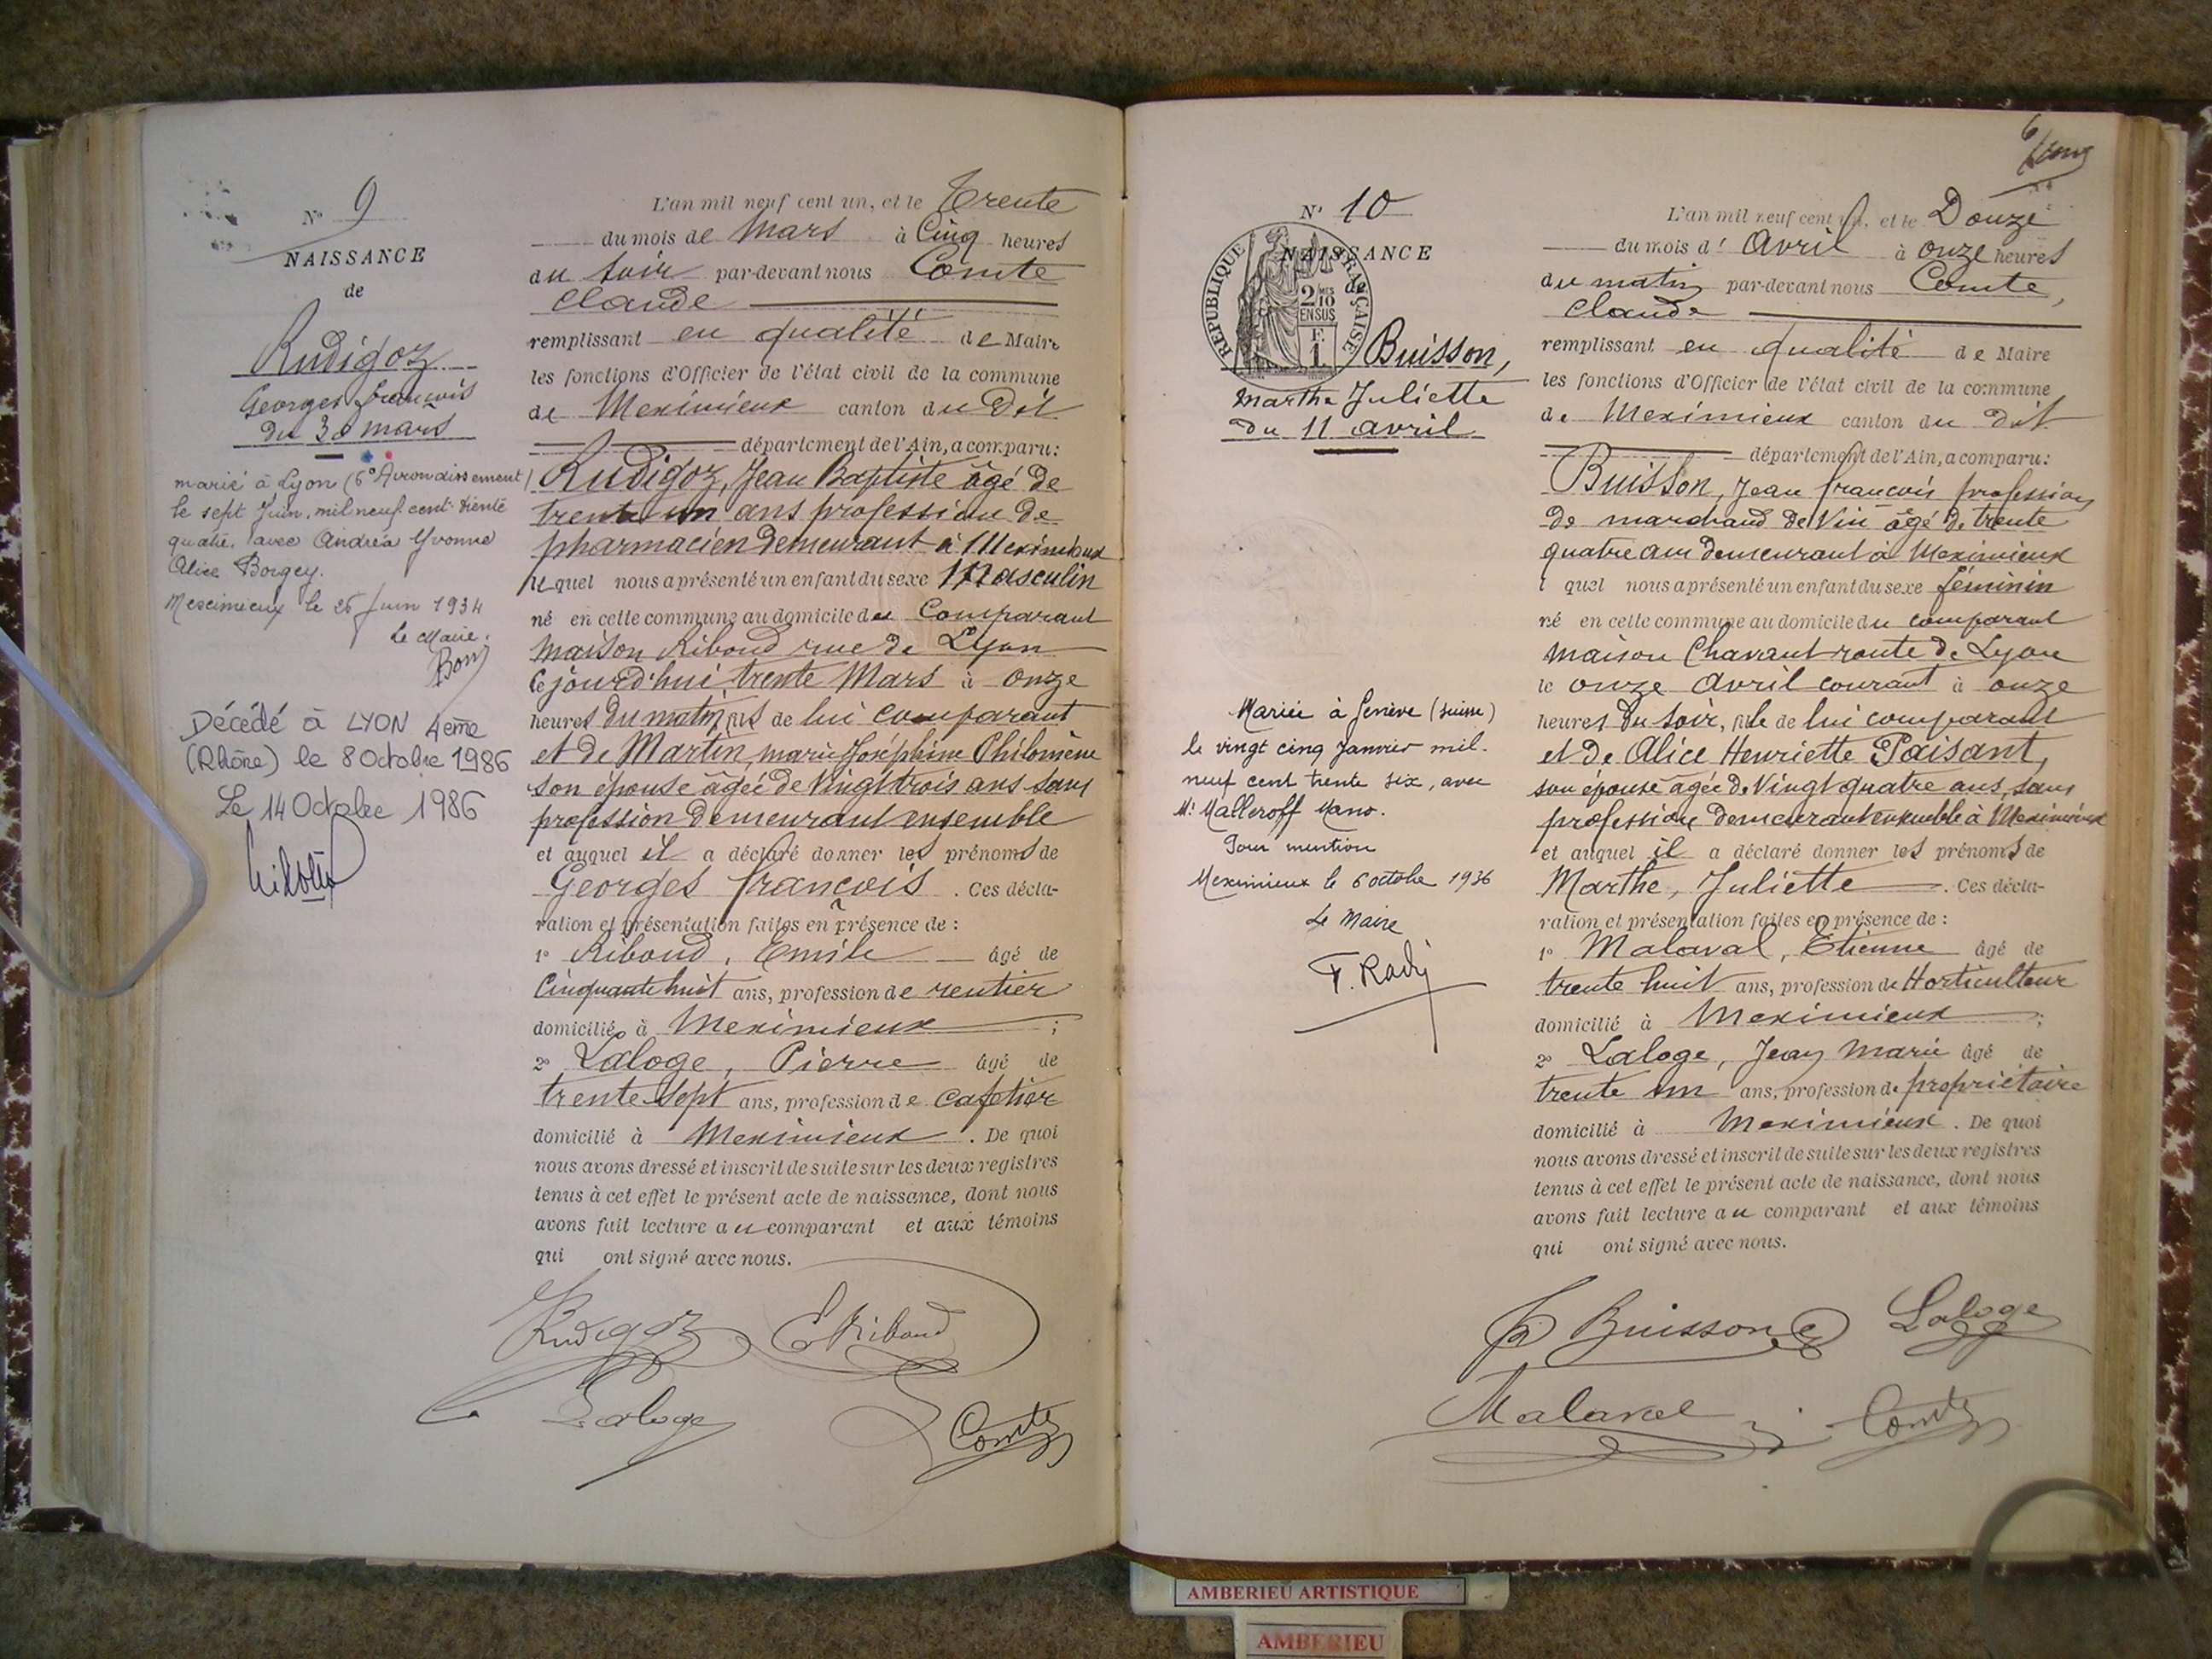 N° 9
NAISSANCE
de
Rudigoz
Georges françois
du 30 mars
marié à Lyon (6e Arrondissement)
le sept Juin mil neuf cent trente
quatre avec Andréa Yvonne
Alice Borgey.
Meximieux le 26 Juin 1934
Le Maire.
Décédé à LYON 4ème
(Rhône) le 8 Octobre 1986
Le 14 Octobre 1986
L'an mil neuf cent un, et le Trente
du mois de Mars à Cinq heures
du soir par-devant nous Comte
Claude
remplissant en qualité de Maire
les fonctions d'Officier de l'état civil de la commune
de Meximieux canton du dit
département de l'Ain, a comparu:
Rudigoz, Jean Baptiste âgé de
trente un ans profession de
pharmacien demeurant à Meximieux
lequel nous a présenté un enfant du sexe Masculin
né en cette commune au domicile du Comparant
maison Riboud rue de Lyon
ce jourd'hui trente Mars à onze
heures du matin, fils de lui comparant
et de Martin, marie Joséphine Philomène
son épouse âgée de Vingt trois ans sans
profession demeurant ensemble
et auquel il a déclaré donner les prénoms de
Georges françois. Ces décla-
ration et présentation faites en présence de :
1° Riboud, Emile âgé de
Cinquante huit ans, profession de rentier
domicilié à Meximieux ;
2° Laloge, Pierre âgé de
trente sept ans, profession de cafetier
domicilié à Meximieux. De quoi
nous avons dressé et inscrit de suite sur les deux registres
tenus à cet effet le présent acte de naissance, dont nous
avons fait lecture au comparant et aux témoins
qui ont signé avec nous.
Rudigoz E Riboud
Laloge Comte
6
N° 10
NAISSANCE
de
REPUBLIQUE FRANÇAISE
2/10 MES
EN SUS
F.
1
Buisson,
Marthe Juliette
du 11 avril
Mariée à Genève (Suisse)
le vingt cinq Janvier mil-
neuf cent trente six, avec
Mr Malleroff Mano.
Pour mention
Meximieux le 6 octobre 1936
Le Maire
L'an mil neuf cent un, et le Douze
du mois d' Avril à onze heures
du matin par-devant nous Comte,
Claude
remplissant en qualité de Maire
les fonctions d'Officier de l'état civil de la commune
de Meximieux canton du dit
département de l'Ain, a comparu:
Buisson, Jean françois profession
de marchand de Vin âgé de trente
quatre ans demeurant à Meximieux
l quel nous a présenté un enfant du sexe féminin
né en cette commune au domicile du comparant
maison Chavant route de Lyon
le onze avril courant à onze
heures du soir, fille de lui comparant
et de Alice Henriette Paisant,
son épouse âgée de Vingt quatre ans, sans
profession demeurant ensemble à Meximieux
et auquel il a déclaré donner les prénoms de
Marthe, Juliette. Ces décla-
ration et présentation faites en présence de :
1° Malaval, Etienne âgé de
trente huit ans, profession de Horticulteur
domicilié à Meximieux ;
2° Laloge, Jean Marie âgé de
trente un ans, profession de propriétaire
domicilié à Meximieux. De quoi
nous avons dressé et inscrit de suite sur les deux registres
tenus à cet effet le présent acte de naissance, dont nous
avons fait lecture au comparant et aux témoins
qui ont signé avec nous.
Buisson Laloge
Malaval Comte
AMBERIEU ARTISTIQUE
AMBERIEU